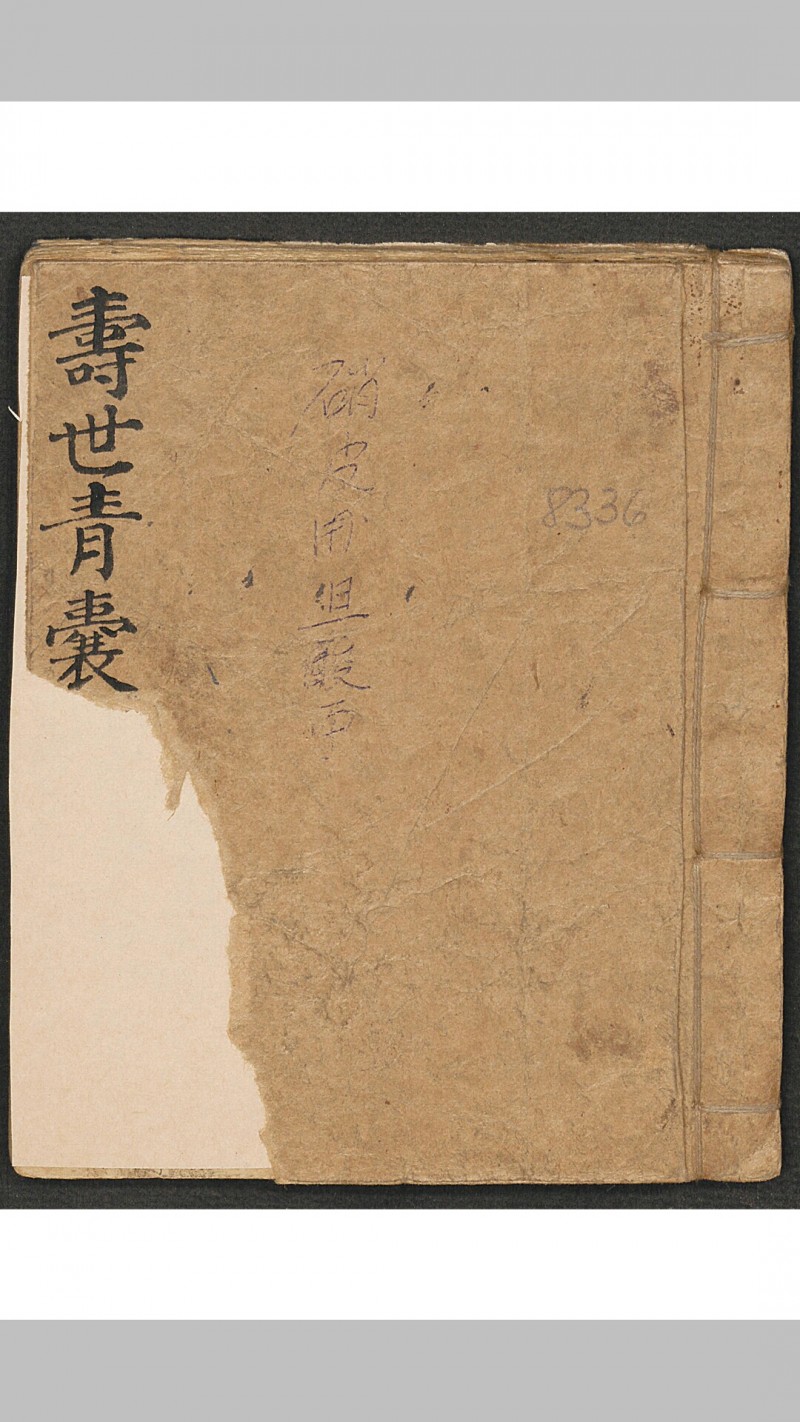 8336
硝皮用
壽世青囊